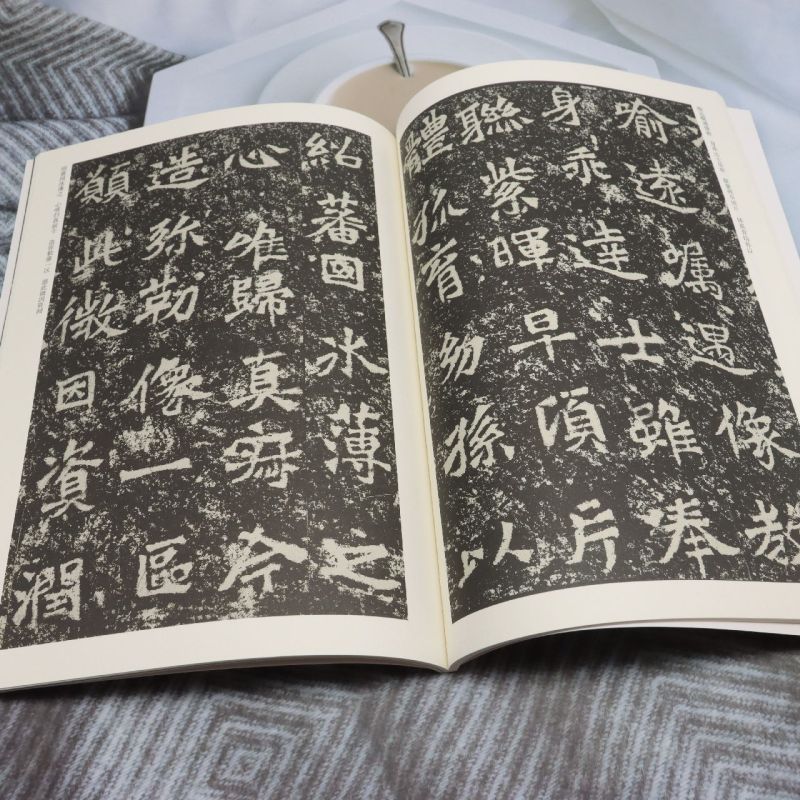 喻遠囑遇像教
身乖達士雖奉
聯紫暉早頃片
體孤育幼孫以
紹蕃國冰薄之
心唯歸真寂今
造弥勒像一區
願此微因資潤